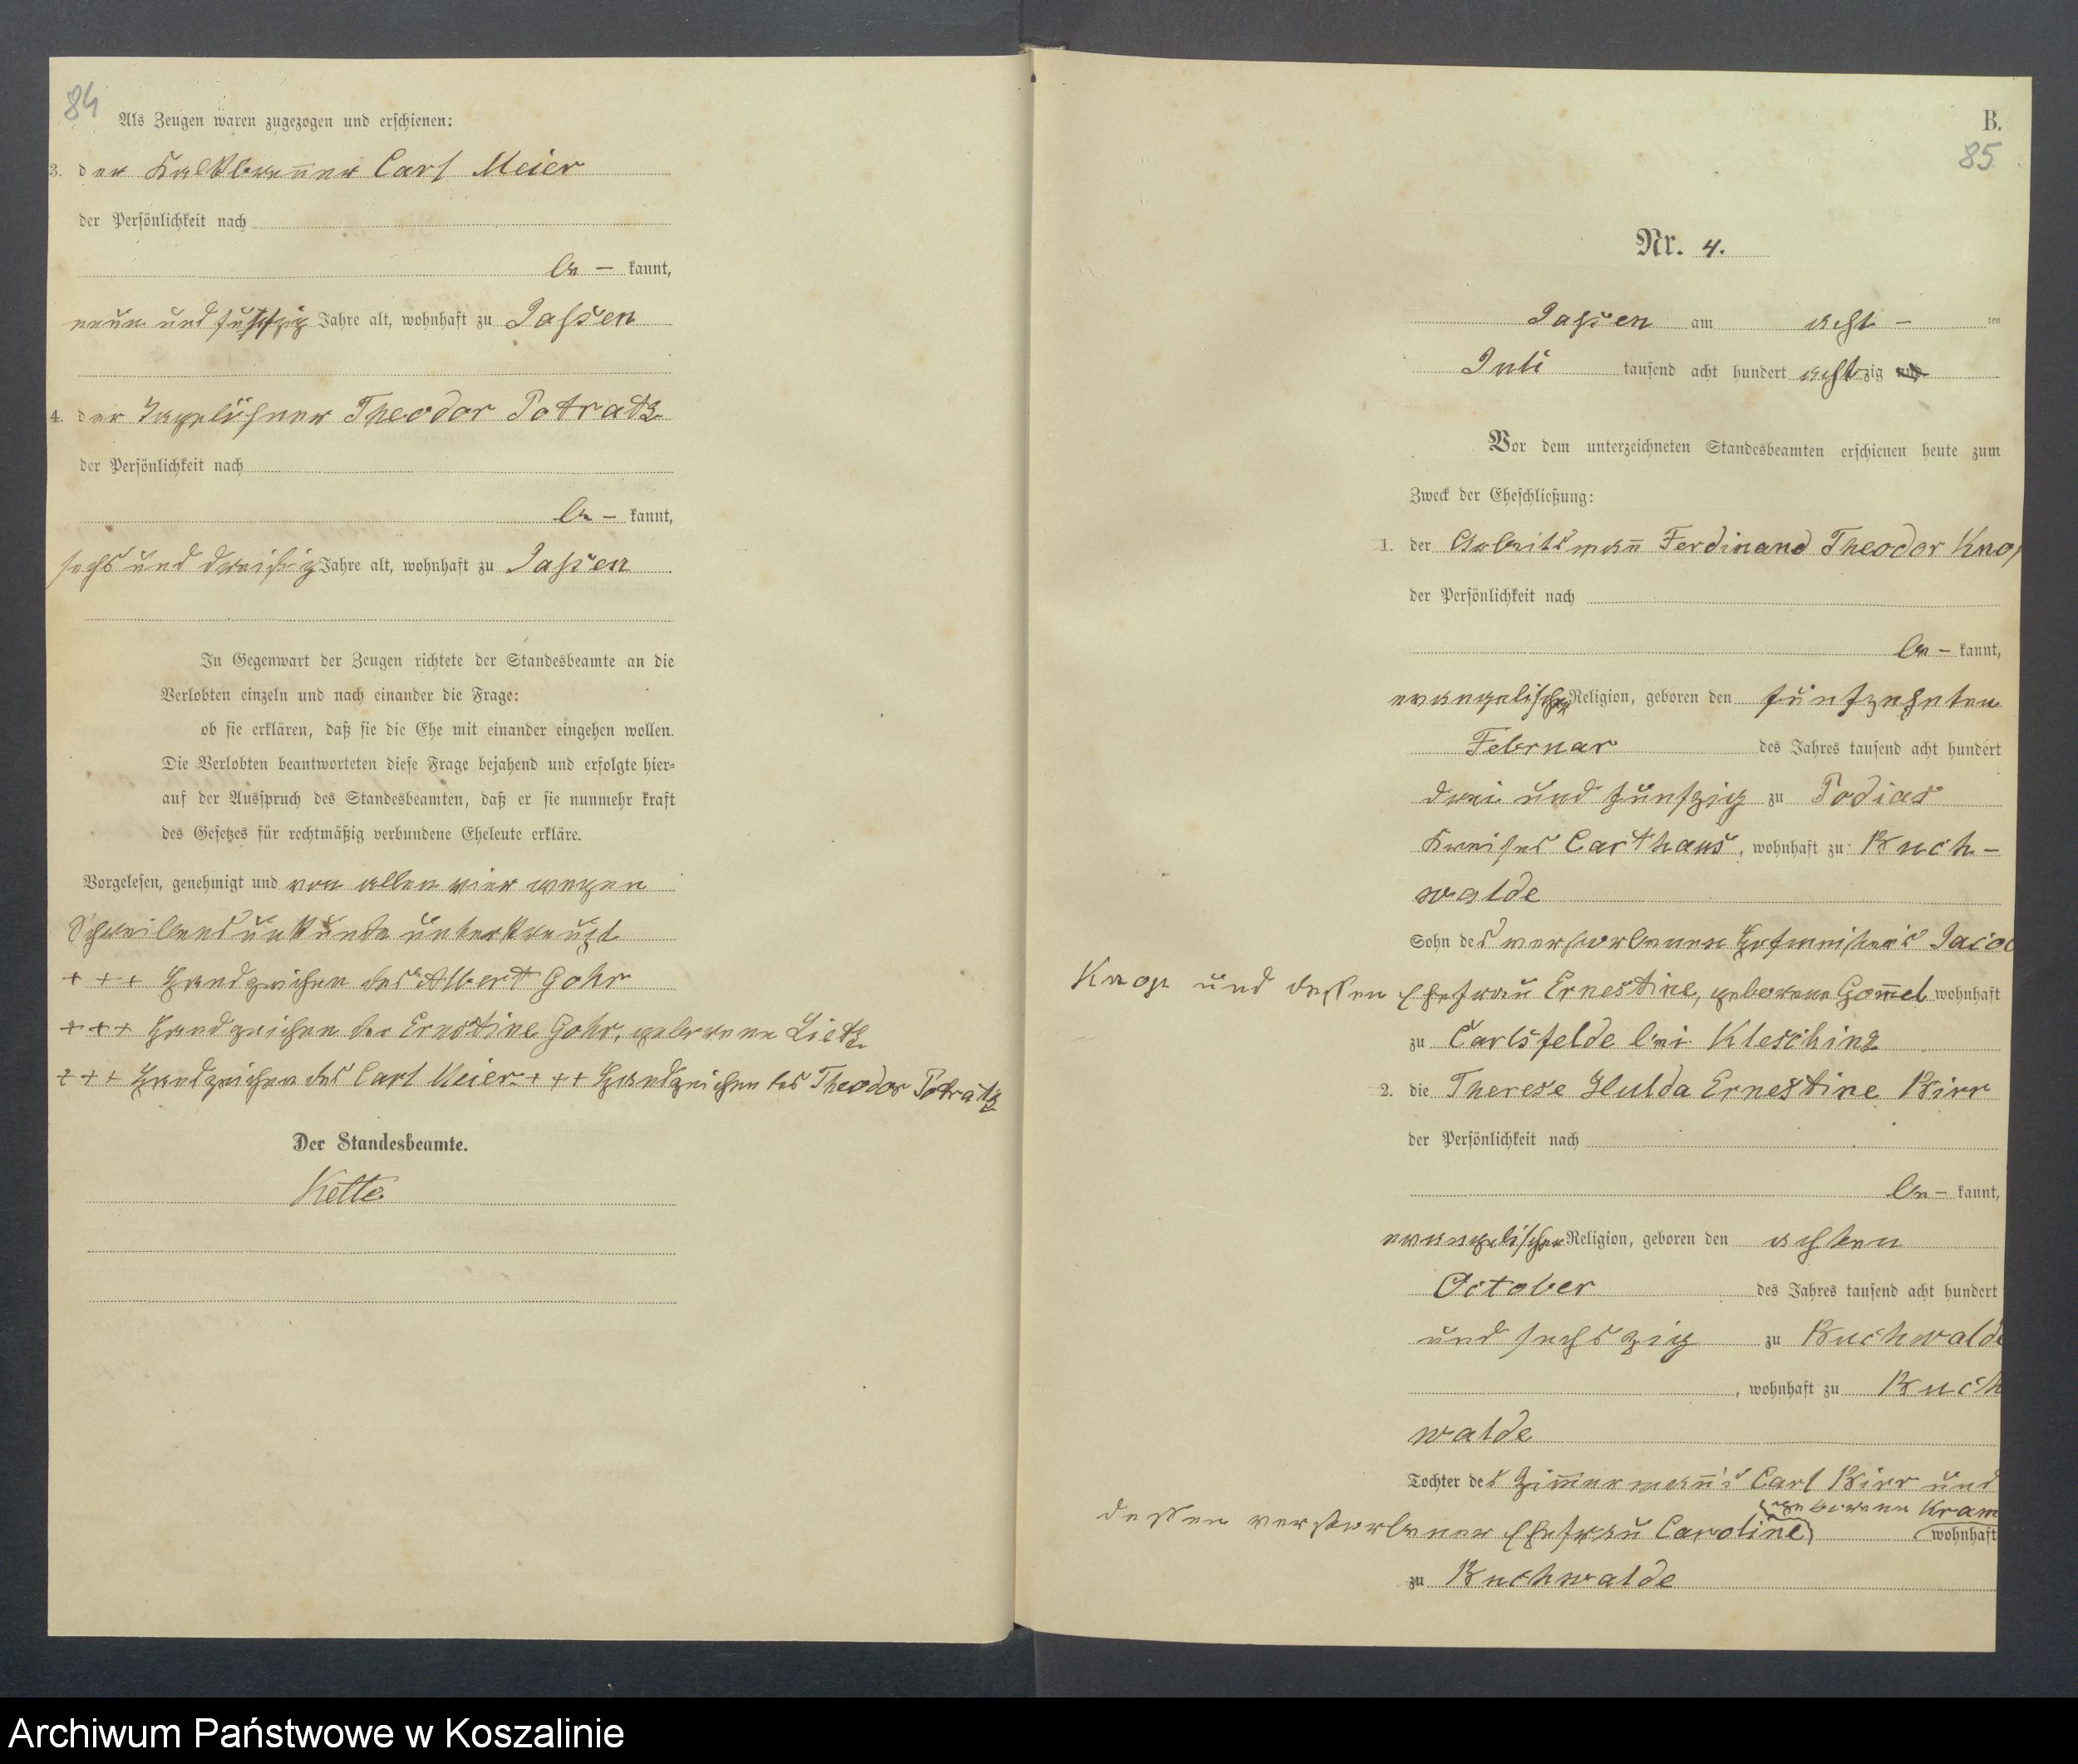 84
Als Zeugen waren zugezogen und erschienen:
3. der Kalkbrenner Carl Meier
der Persönlichkeit nach
be – kannt,
neun und fünfzig Jahre alt, wohnhaft zu Jassen
4. der Tagelöhner Theodor Potratz
der Persönlichkeit nach
be – kannt,
sechs und dreißig Jahre alt, wohnhaft zu Jassen
In Gegenwart der Zeugen richtete der Standesbeamte an die
Verlobten einzeln und nach einander die Frage:
ob sie erklären, daß sie die Ehe mit einander eingehen wollen.
Die Verlobten beantworteten diese Frage bejahend und erfolgte hier-
auf der Ausspruch des Standesbeamten, daß er sie nunmehr kraft
des Gesetzes für rechtmäßig verbundene Eheleute erkläre.
Vorgelesen, genehmigt und von allen vier wegen
Schreibensunkunde unterkreuzt
+ + + Handzeichen des Albert Gohr
+ + + Handzeichen der Ernestine Gohr, geborene Lietz
+ + + Handzeichen des Carl Meier + + + Handzeichen des Theodor Potratz
Der Standesbeamte.
Kette
B.
85
Nr. 4.
Jassen am acht – ten
Juli tausend acht hundert achtzig und
Vor dem unterzeichneten Standesbeamten erschienen heute zum
Zweck der Eheschließung:
1. der Arbeitsmann Ferdinand Theodor Knop
der Persönlichkeit nach
be – kannt,
evangelischer Religion, geboren den fünfzehnten
Februar des Jahres tausend acht hundert
drei und fünfzig zu Podias
Kreises Carthaus, wohnhaft zu Buch-
walde
Sohn des verstorbenen Hofmeisters Jacob
Knop und dessen Ehefrau Ernestine, geborene Gom̄el wohnhaft
zu Carlsfelde bei Kleschinz
2. die Therese Hulda Ernestine Birr
der Persönlichkeit nach
be – kannt,
evangelischer Religion, geboren den achten
October des Jahres tausend acht hundert
und sechszig zu Buchwalde
, wohnhaft zu Buch
walde
Tochter des Zim̄ermañ's Carl Birr und
geborene Kram
dessen verstorbener Ehefrau Caroline wohnhaft
zu Buchwalde
Archiwum Państwowe w Koszalinie